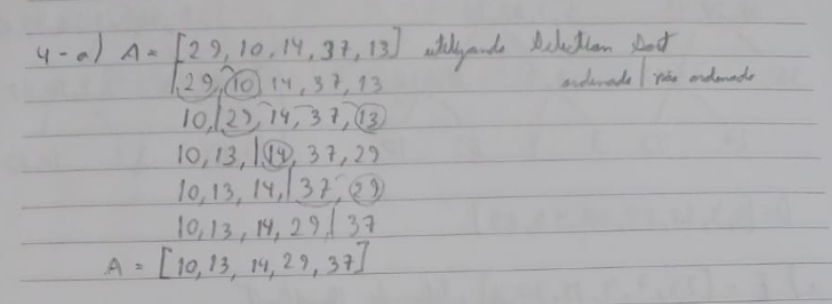 4-a) A = [29, 10, 14, 37, 13] utilizando Selection Sort
|29, 10, 14, 37, 13 ordenado | não ordenado
10,|29, 14, 37, 13
10, 13, |14, 37, 29
10, 13, 14,|37, 29
10, 13, 14, 29| 37
A = [10, 13, 14, 29, 37]